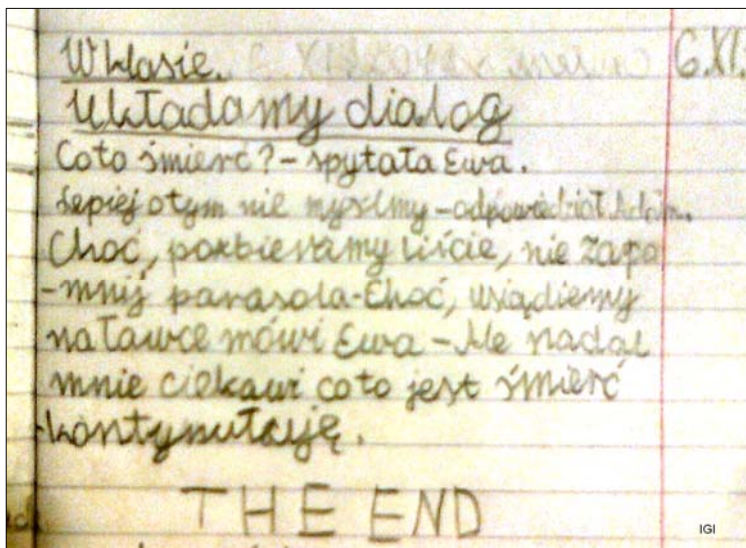 W klasie. 6.XI.
Układamy dialog
Co to śmierć? - spytała Ewa.
Lepiej o tym nie myślmy - odpowiedział Adam.
Choć, pozbieramy liście, nie zapo
-mnij parasola - Choć, usiądiemy
na ławce mówi Ewa - Ale nadal
mnie ciekawi co to jest śmierć
- kontynułuję.
THE END
IGI